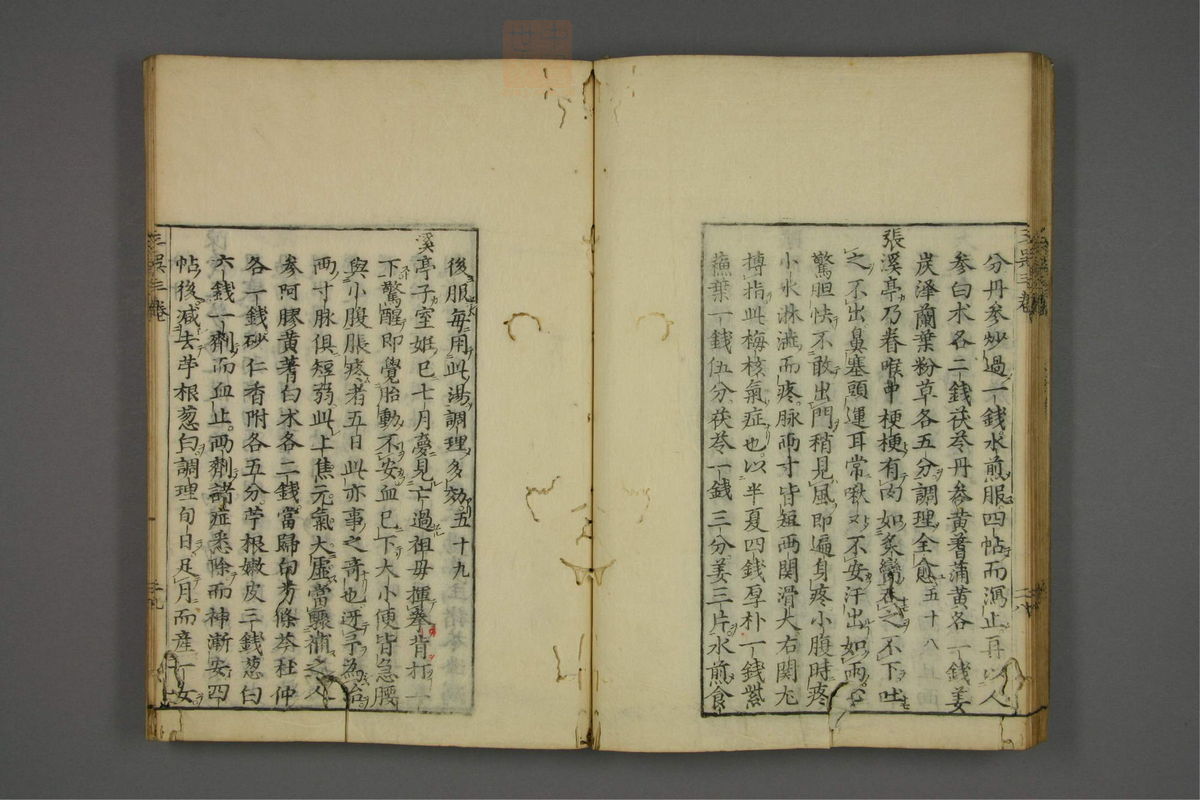 分丹參炒過一錢水煎服四帖而瀉止再以人
參白朮各二錢茯苓丹參黃蓍蒲黃各一錢姜
炭澤蘭葉粉草各五分調理全愈五十八
張溪亭乃眷喉中梗梗有肉如炙臠吞之不下吐
之不出鼻塞頭運耳常啾啾不安汗出如雨心
驚胆怯不敢出門稍見風即遍身疼小腹時疼
小水淋澁而疼脉兩寸皆短兩関滑大右関尤
搏指此梅核氣症也以半夏四錢厚朴一錢紫
蘓葉一錢伍分茯苓一錢三分姜三片水煎食
三吳三卷
二十八
後服每用此湯調理多効五十九
溪亭子室姙已七月夢見亡過祖母揮拳背打一
下驚醒即覺胎動不安血已下大小便皆急腰
與小腹脹疼者五日此亦事之奇也迓予為治
兩寸脉俱短弱此上焦元氣大虛當驟補之人
參阿膠黃蓍白朮各二錢當歸白芍條芩杜仲
各一錢砂仁香附各五分苧根嫩皮三錢葱白
六錢一劑而血止兩劑諸症悉除而神漸安四
帖後減去苧根葱白調理旬日足月而產一女
三吳三卷
二十九